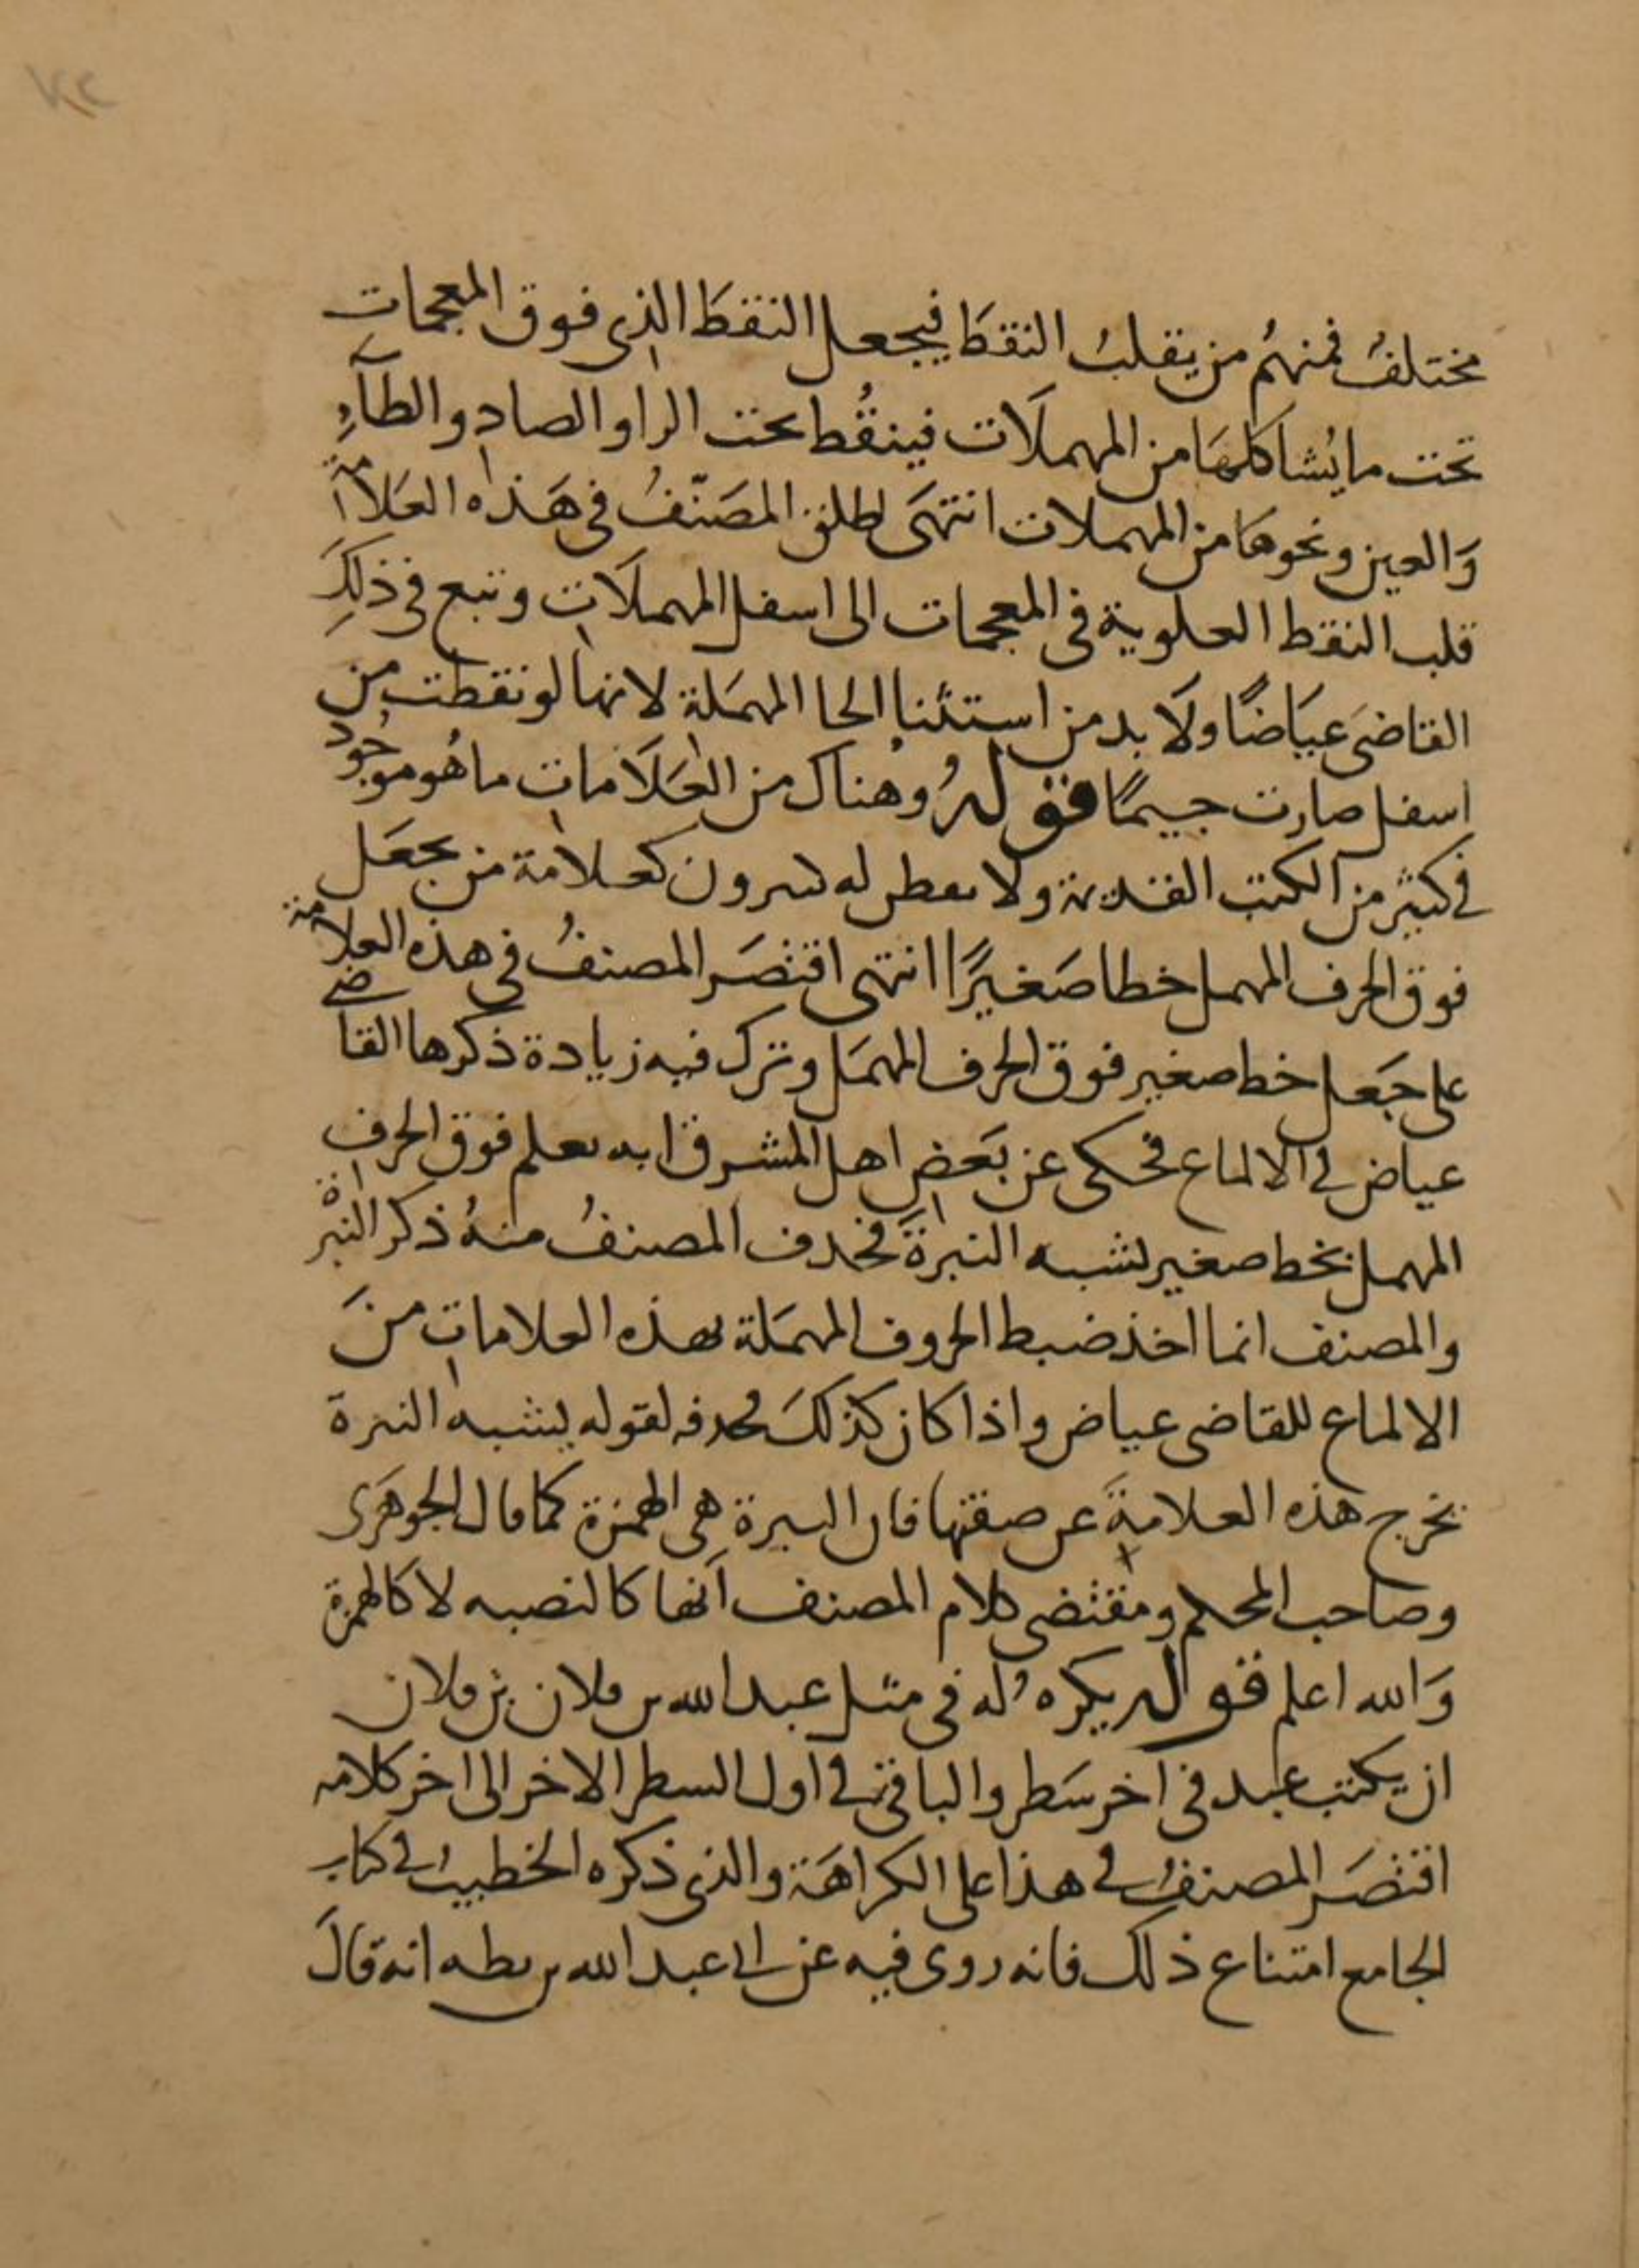 مختلف فمنهم من يقلب النقط فيجعل النقط الذى فوق المعجمات
تحت ما يشاكلها من المهملات فينقط تحت الرا والصاد والطاء
والعين ونحوها من المهملات انتهى اطلق المصنف فى هذه العلامة
قلب النقط العلوية فى المعجمات الى اسفل المهملات وتبع فى ذلك
القاضى عياضا ولا بد من استثنا الحا المهملة لانها لو نقطت من
اسفل صارت جيما قوله وهناك من العلامات ما هو موجود
فى كثير من الكتب القديمة ولا يفطن له كثيرون كعلامة من يجعل
فوق الحرف المهمل خطا صغيرا انتهى اقتصر المصنف فى هذه العلامة
على جعل خط صغير فوق الحرف المهمل وترك فيه زيادة ذكرها القاضى
عياض فى الالماع فحكى عن بعض اهل المشرق انه يعلم فوق الحرف
المهمل بخط صغير يشبه النبرة فحذف المصنف منه ذكر النبرة
والمصنف انما اخذ ضبط الحروف المهملة بهذه العلامات من
الالماع للقاضى عياض واذا كان كذلك فحذفه لقوله يشبه النبرة
يخرج هذه العلامة عن صفتها فان النبرة هى الهمزة كما قال الجوهرى
وصاحب المحكم ومقتضى كلام المصنف انها كالنصبه لا كالهمزة
والله اعلم قوله يكره له فى مثل عبد الله بن فلان بن فلان
ان يكتب عبد فى اخر سطر والباقى فى اول السطر الاخر الى اخر كلامه
اقتصر المصنف فى هذا على الكراهة والذى ذكره الخطيب فى كتاب
الجامع امتناع ذلك فانه روى فيه عن ابى عبد الله بن بطه انه قال